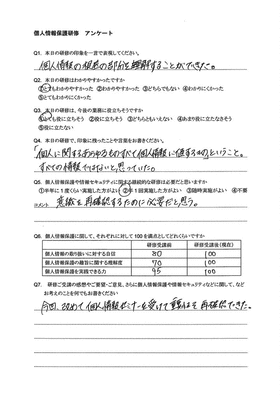 個人情報保護研修　アンケート
Q1. 本日の研修の印象を一言で表現してください。
個人情報の根底の部分を理解することができた。
Q2. 本日の研修はわかりやすかったですか
①とてもわかりやすかった ②わかりやすかった ③どちらでもない ④わかりにくかった
⑤とてもわかりにくかった
Q3. 本日の研修は、今後の業務に役立ちそうですか
①とても役立ちそう ②役立ちそう ③どちらともいえない ④あまり役に立たなさそう
⑤役に立たない
Q4. 本日の研修で、印象に残ったことや言葉をお書きください。
「個人に関するあらゆるものすべて個人情報に値するもの」ということ。
すべての情報ではないと思っていた。
Q5. 個人情報保護や情報セキュリティに関する継続的な研修は必要だと思いますか
①半年に1度くらい実施した方がよい ②年1回実施した方がよい ③随時実施がよい ④不要
コメント 意識を再確認するために必要だと思う。
Q6. 個人情報保護に関して、それぞれに対して100を満点としてどれくらいですか
研修受講前 研修受講後（現在）
個人情報の取り扱いに対する自信 80 100
個人情報保護の趣旨に関する理解度 70 100
個人情報保護を実践できる力 95 100
Q7. 研修ご受講の感想やご要望・ご意見、さらに個人情報保護や情報セキュリティなどに関して、など
お考えのことを何でもお書きください
今回、改めて個人情報セミナーを受けて重要性を再確認できた。